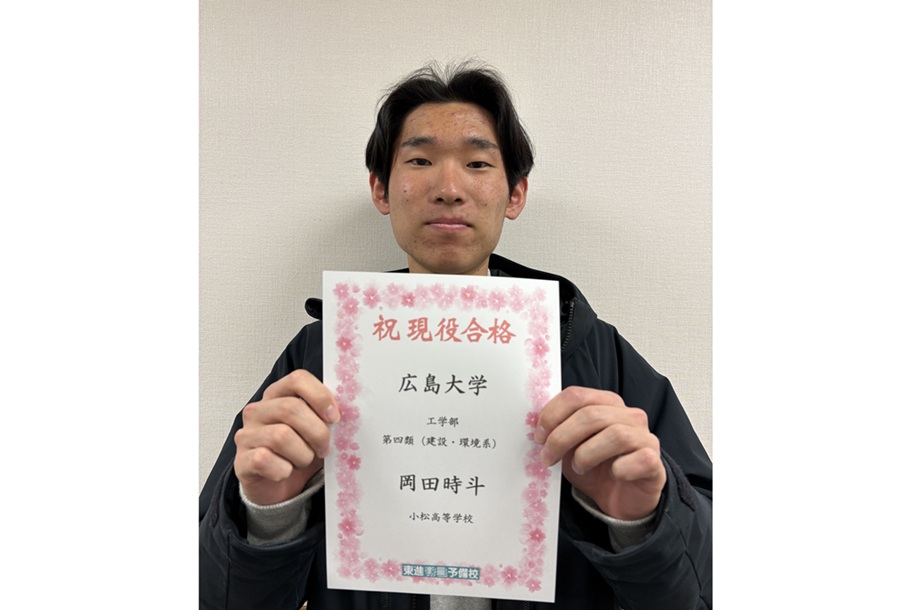 祝 現役合格
広島大学
工学部
第四類（建設・環境系）
岡田時斗
小松高等学校
東進 予備校